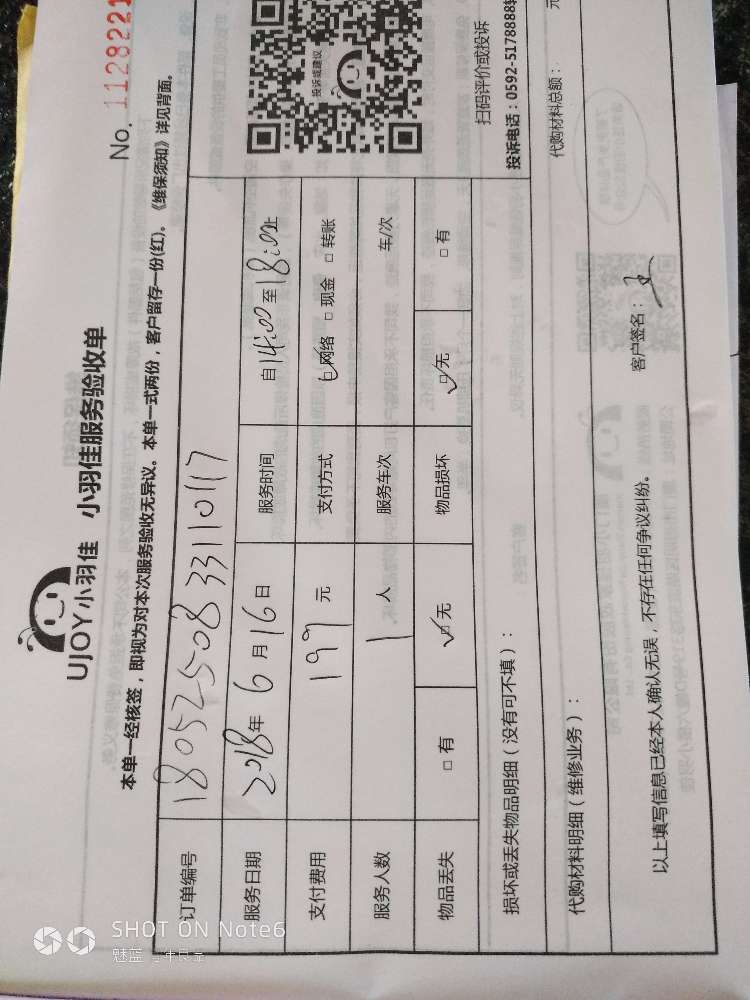 UJOY小羽佳 小羽佳服务验收单
No. 1128221
本单一经核签，即视为对本次服务验收无异议。本单一式两份，客户留存一份(红)。《维保须知》详见背面。
订单编号 180525083311 0117
服务日期 2018年 6月 16日 服务时间 自14:00至18:00止
支付费用 197 元 支付方式 ☑网络 □现金 □转账
服务人数 1 人 服务车次 车/次
物品丢失 □有 ☑无 物品损坏 ☑无 □有
投诉或建议
扫码评价或投诉
投诉电话：0592-5178888转
损坏或丢失物品明细（没有可不填）：
代购材料明细（维修业务）： 代购材料总额： 元
以上填写信息已经本人确认无误，不存在任何争议纠纷。 客户签名：
SHOT ON Note6
魅蓝